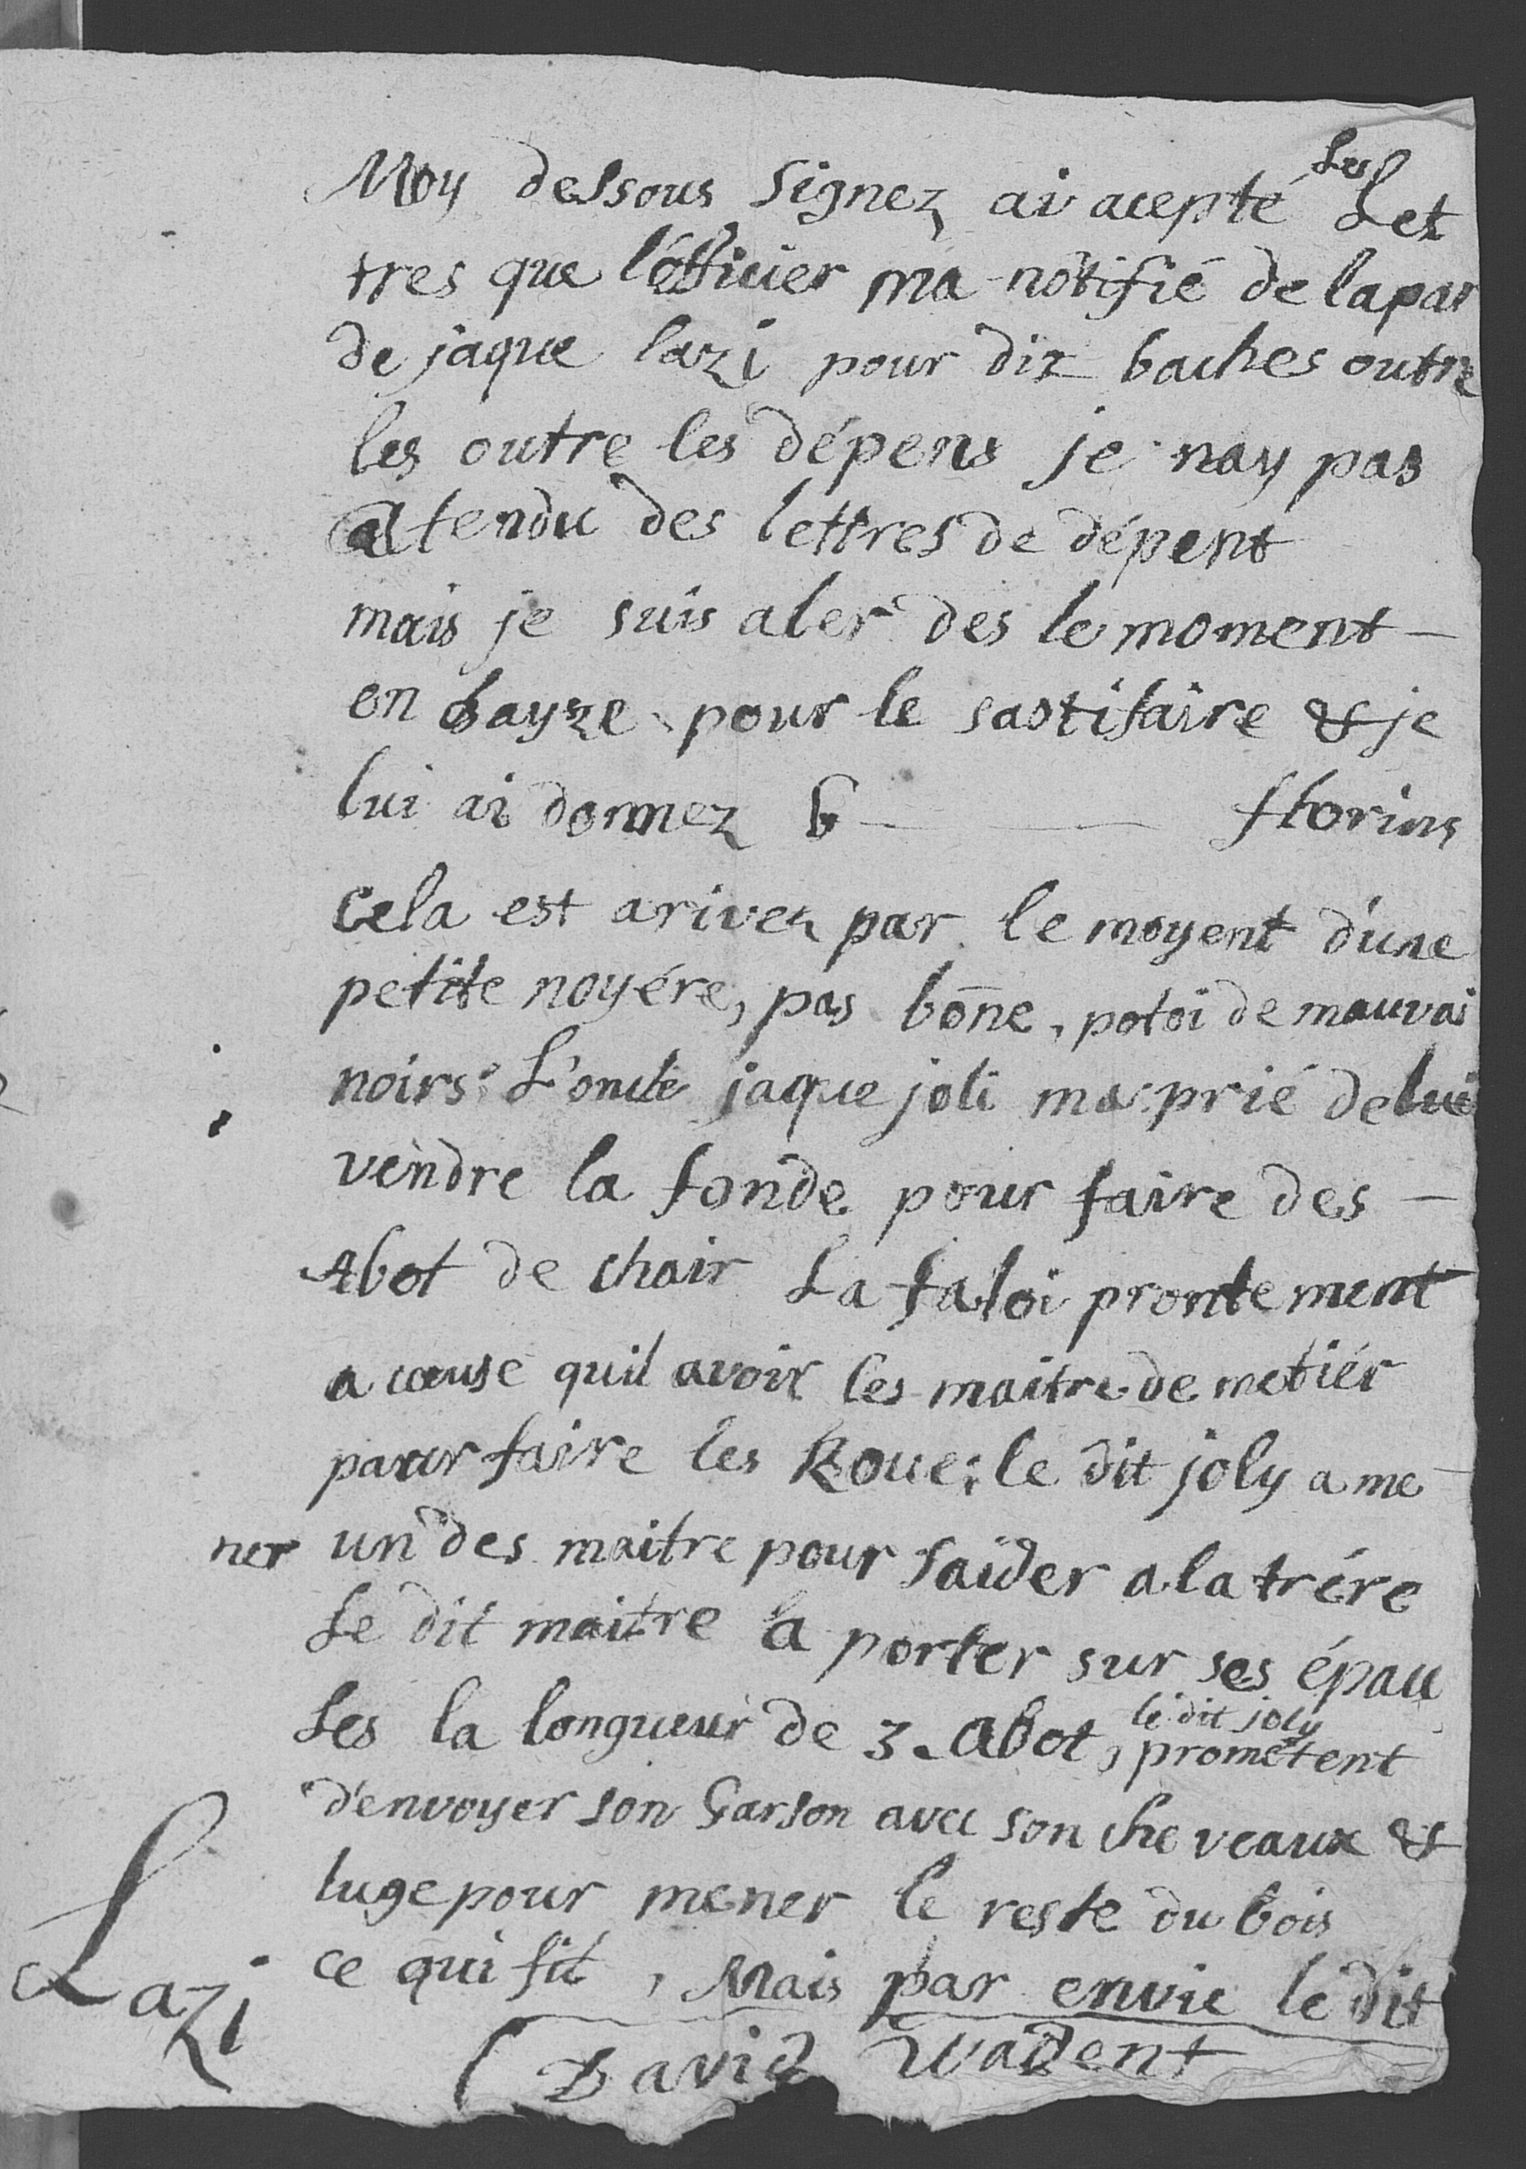 Moy dessous signez ai acepté les Let
tres que l'officier ma notifié de la par
de jaque lazi pour dix baches outre
les outre les dépens je nay pas
attendu des lettres de dépent
mais je suis aler des le moment —
en bayze pour le sastifaire & je
lui ai donnez 6 — florins
cela est arivez par le moyent d'une
petite noyére, pas bōne, potoi de mauvai
noirs: L'oncle jaque joli ma prié de lui
vendre la fonde pour faire des —
Abot de chair La faloi prontement
a cause quil avoit les maitre de metiér
pour faire les Roue; le dit joly a me
ner un des maitre pour s'aider a la trére
Le dit maitre la porter sur ses épau
Les la longueur de 3. abot, le dit joly prometent
d'envoyer son Garson avec son cheveaux &
luge pour mener le reste du bois
ce qui fit, Mais par envie le dit
Lazi
David Wadent